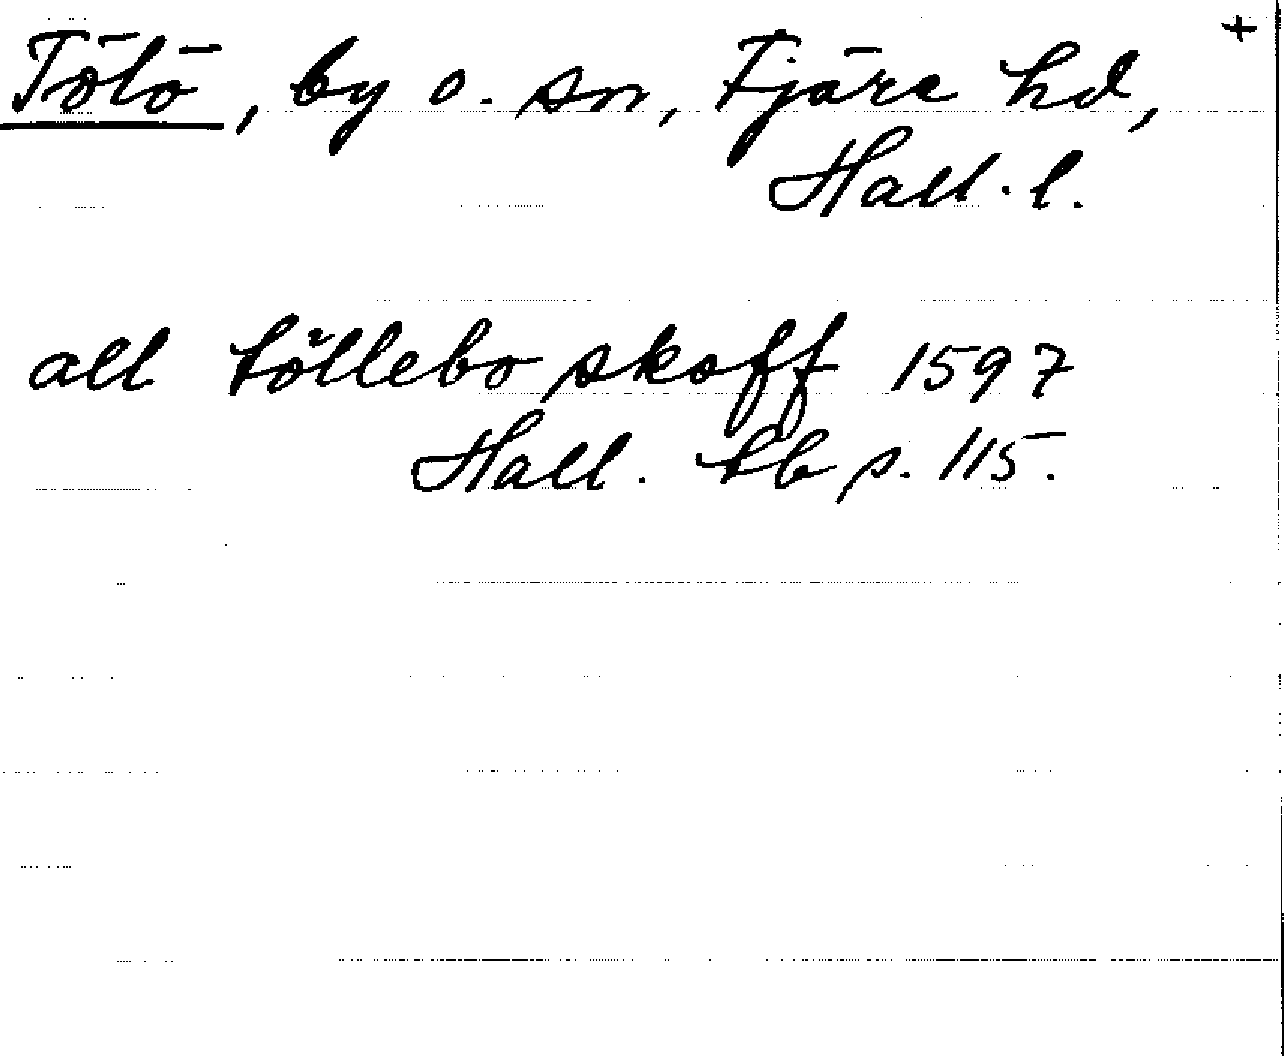 +
Tölö, by o. sn, Fjäre hd,
Hall. l.
all töllebo skoff 1597
Hall. tb s. 115.